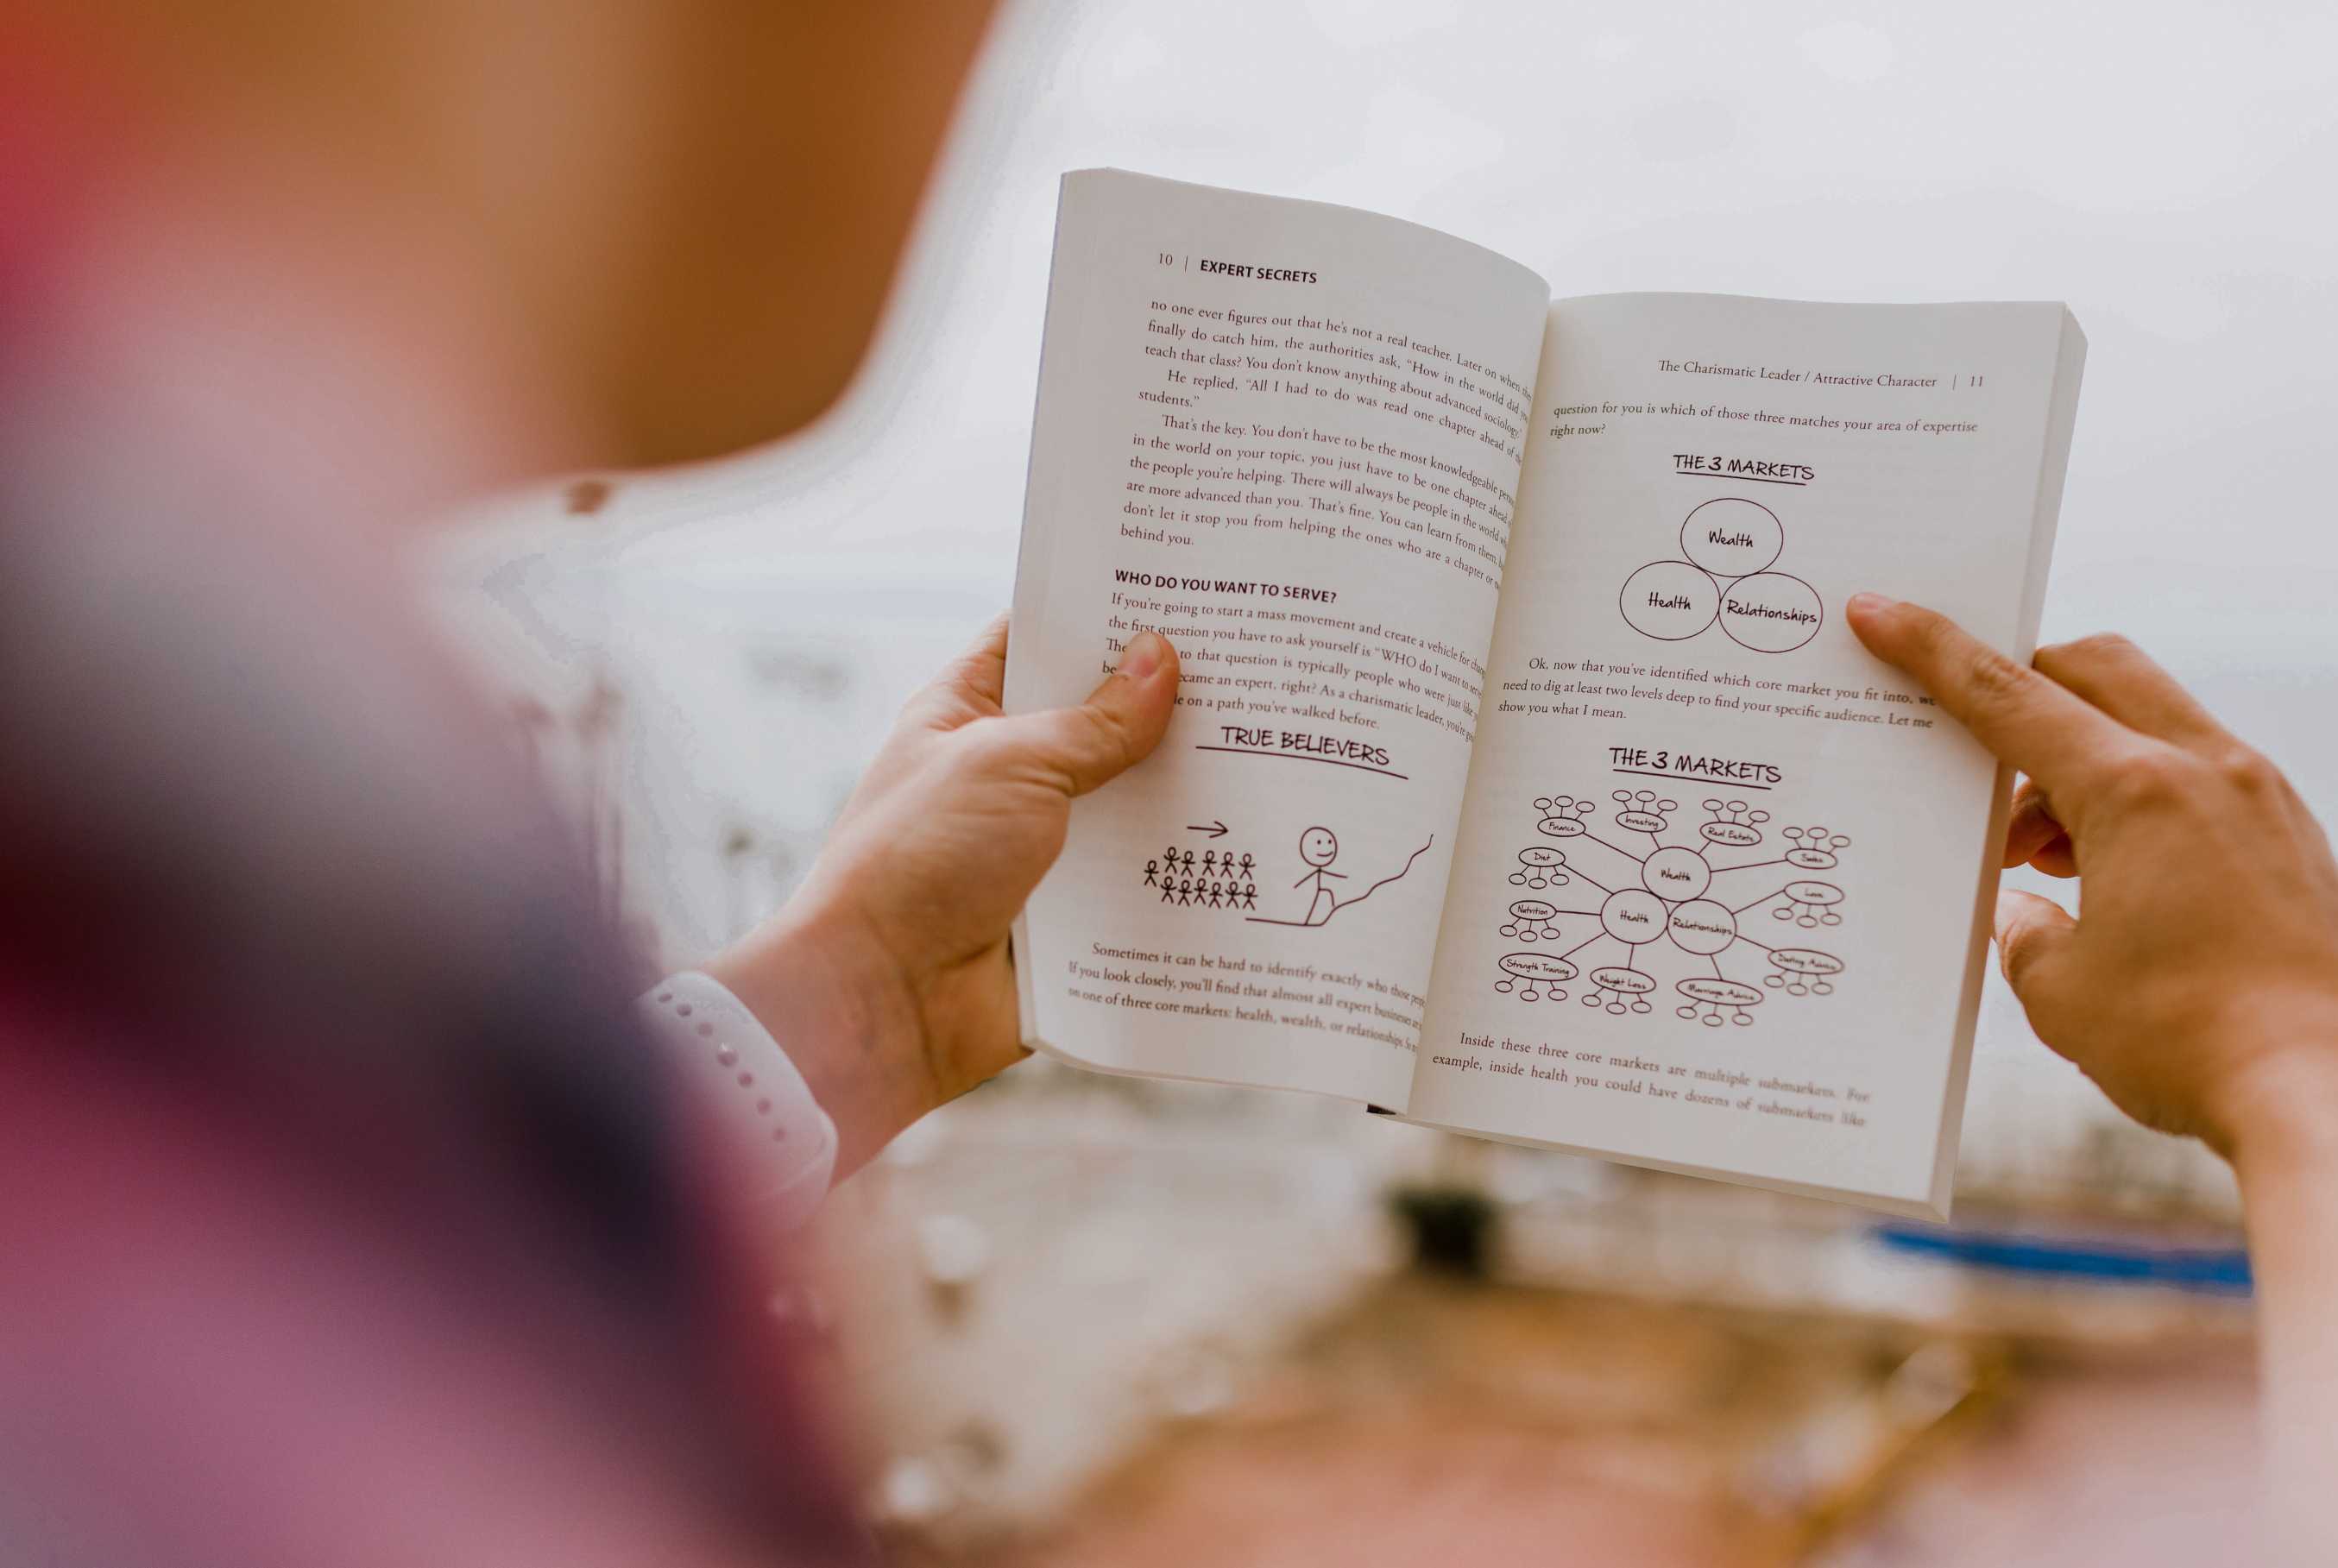 10 | EXPERT SECRETS
no one ever figures out that he's not a real teacher. Later on when
finally do catch him, the authorities ask, "How in the world did
teach that class? You don't know anything about advanced sociology."
He replied, "All I had to do was read one chapter ahead of
students."
That's the key. You don't have to be the most knowledgeable
in the world on your topic, you just have to be one chapter ahead
the people you're helping. There will always be people in the world
are more advanced than you. That's fine. You can learn from them,
don't let it stop you from helping the ones who are a chapter or
behind you.
WHO DO YOU WANT TO SERVE?
If you're going to start a mass movement and create a vehicle for
the first question you have to ask yourself is "WHO do I want to
to that question is typically people who were just like
became an expert, right? As a charismatic leader, you're
on a path you've walked before.
TRUE BELIEVERS
Sometimes it can be hard to identify exactly who those
If you look closely, you'll find that almost all expert businesses
on one of three core markets: health, wealth, or relationships. So
The Charismatic Leader / Attractive Character | 11
question for you is which of those three matches your area of expertise
right now?
THE 3 MARKETS
Wealth
Health
Relationships
Ok, now that you've identified which core market you fit into, we
need to dig at least two levels deep to find your specific audience. Let me
show you what I mean.
THE 3 MARKETS
Finance
Investing
Real Estate
Sales
Diet
Wealth
Love
Nutrition
Health
Relationships
Strength Training
Weight Loss
Marriage Advice
Dating Advice
Inside these three core markets are multiple submarkets. For
example, inside health you could have dozens of submarkets like